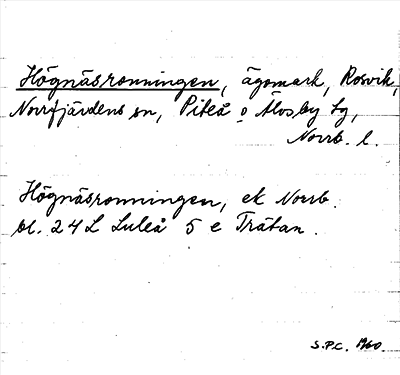 Högnäsronningen, ägomark, Rosvik,
Norrfjärdens sn, Piteå o Älvsby tg,
Norrb. l.
Högnäsronningen, ek Norrb.
bl. 24 L Luleå 5 e Trätan.
S.P.C. 1960.